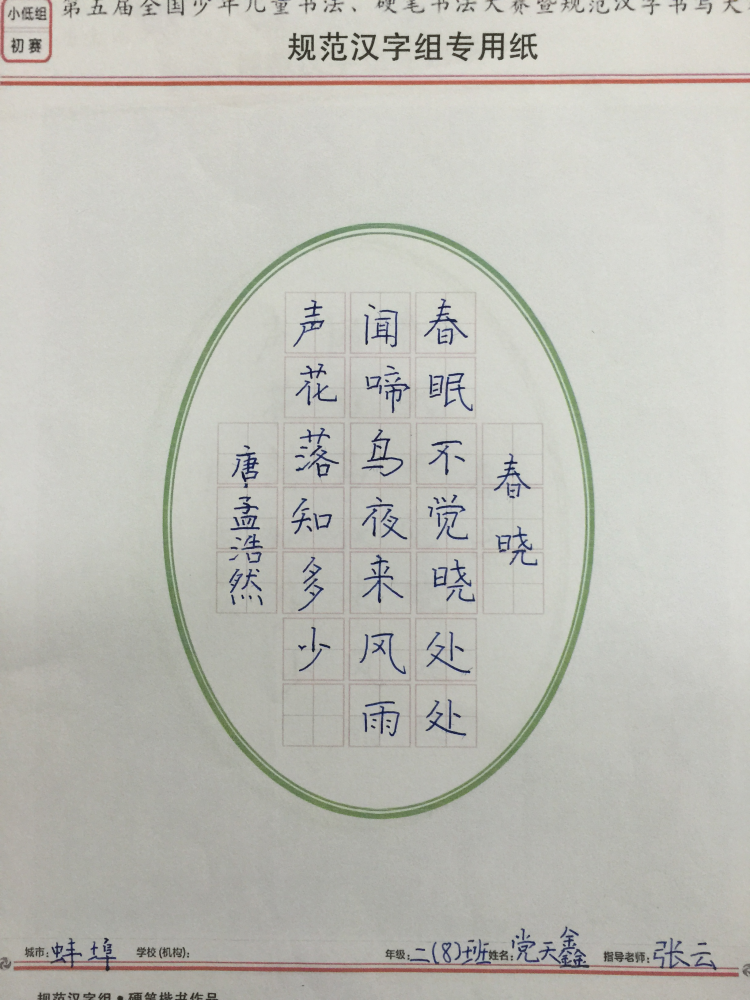 小低组
初赛
第五届全国少年儿童书法、硬笔书法大赛暨规范汉字书写大
规范汉字组专用纸
春晓
春眠不觉晓处处
闻啼鸟夜来风雨
声花落知多少
唐孟浩然
城市：蚌埠 学校(机构)： 年级：二(8)班 姓名：党天鑫 指导老师：张云
规范汉字组·硬笔楷书作品